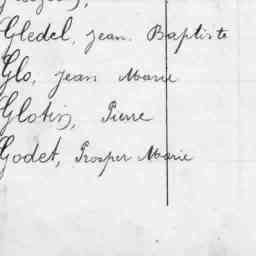 Gledel, Jean Baptiste
Glo, Jean Marie
Glotin, Pierre
Godet, Prosper Marie